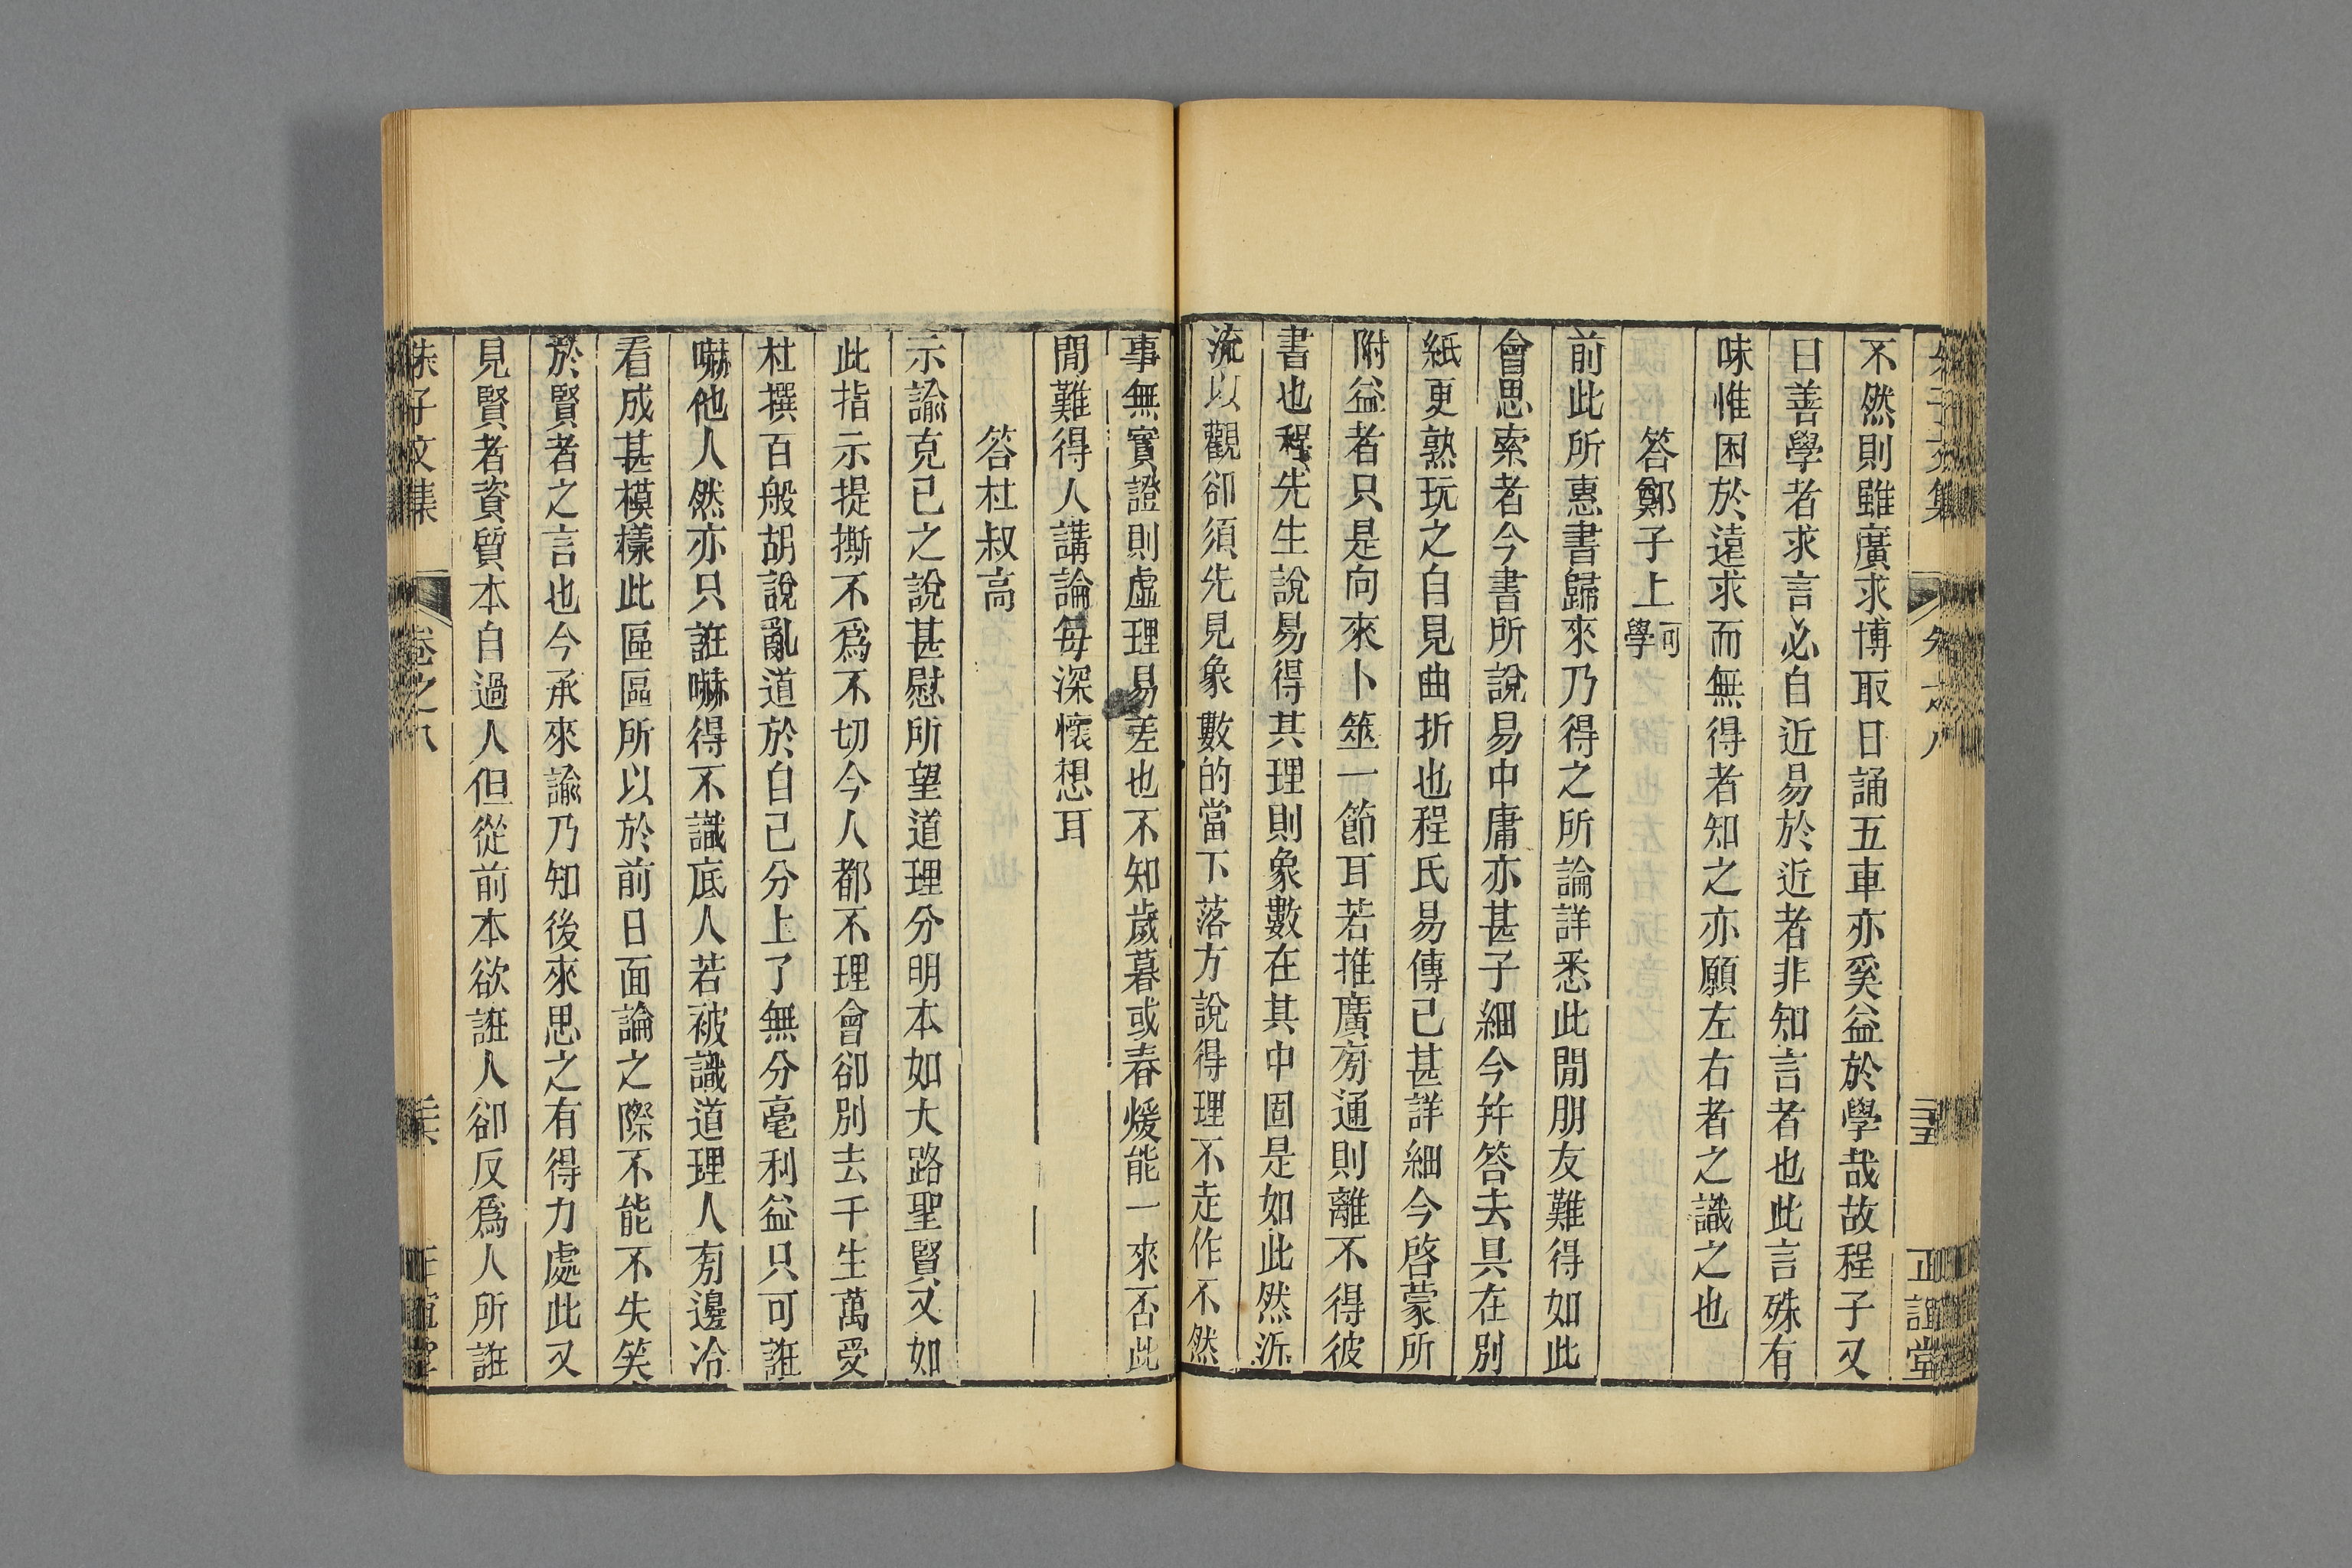 不然則雖廣求博取日誦五車亦奚益於學哉故程子又
曰善學者求言必自近易於近者非知言者也此言殊有
味惟困於遠求而無得者知之亦願左右者之識之也
答鄭子上可學
前此所惠書歸來乃得之所論詳悉此閒朋友難得如此
會思索者今書所說易中庸亦甚子細今幷答去具在別
紙更熟玩之自見曲折也程氏易傳已甚詳細今啓蒙所
附益者只是向來卜筮一節耳若推廣旁通則離不得彼
書也程先生說易得其理則象數在其中固是如此然泝
流以觀卻須先見象數的當下落方說得理不走作不然
事無實證則虛理易差也不知歲暮或春煖能一來否此
閒難得人講論每深懷想耳
答杜叔高
示諭克已之說甚慰所望道理分明本如大路聖賢又如
此指示提撕不爲不切今人都不理會卻別去千生萬受
杜撰百般胡說亂道於自己分上了無分毫利益只可誑
嚇他人然亦只誑嚇得不識底人若被識道理人旁邊冷
看成甚模樣此區區所以於前日面論之際不能不失笑
於賢者之言也今承來諭乃知後來思之有得力處此又
見賢者資質本自過人但從前本欲誑人卻反爲人所誑
朱子文集 卷之八
正誼堂